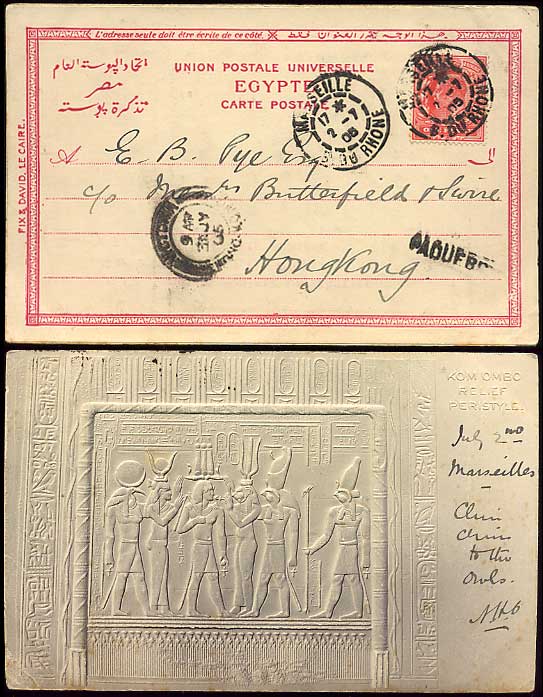 L'adresse seule doit être écrite de ce côté.
هذا الوجه يكتب العنوان فقط
UNION POSTALE UNIVERSELLE
اتحاد البوسته العام
EGYPTE
مصر
CARTE POSTALE
تذكرة بوسته
FIX & DAVID, LE CAIRE.
MARSEILLE
17 *
2 - 7
05
RHONE
MARSEILLE
17
2 - 7
05
B. DU RHONE
A E. B. Pye Esq
c/o Messrs Butterfield & Swire
Hongkong
VICTORIA
9 AM
JY
05
HONG-KONG
PAQUEBOT
KOM OMBO
RELIEF
PERISTYLE.
July 2nd
Marseilles
Chin
chin
to the
owls.